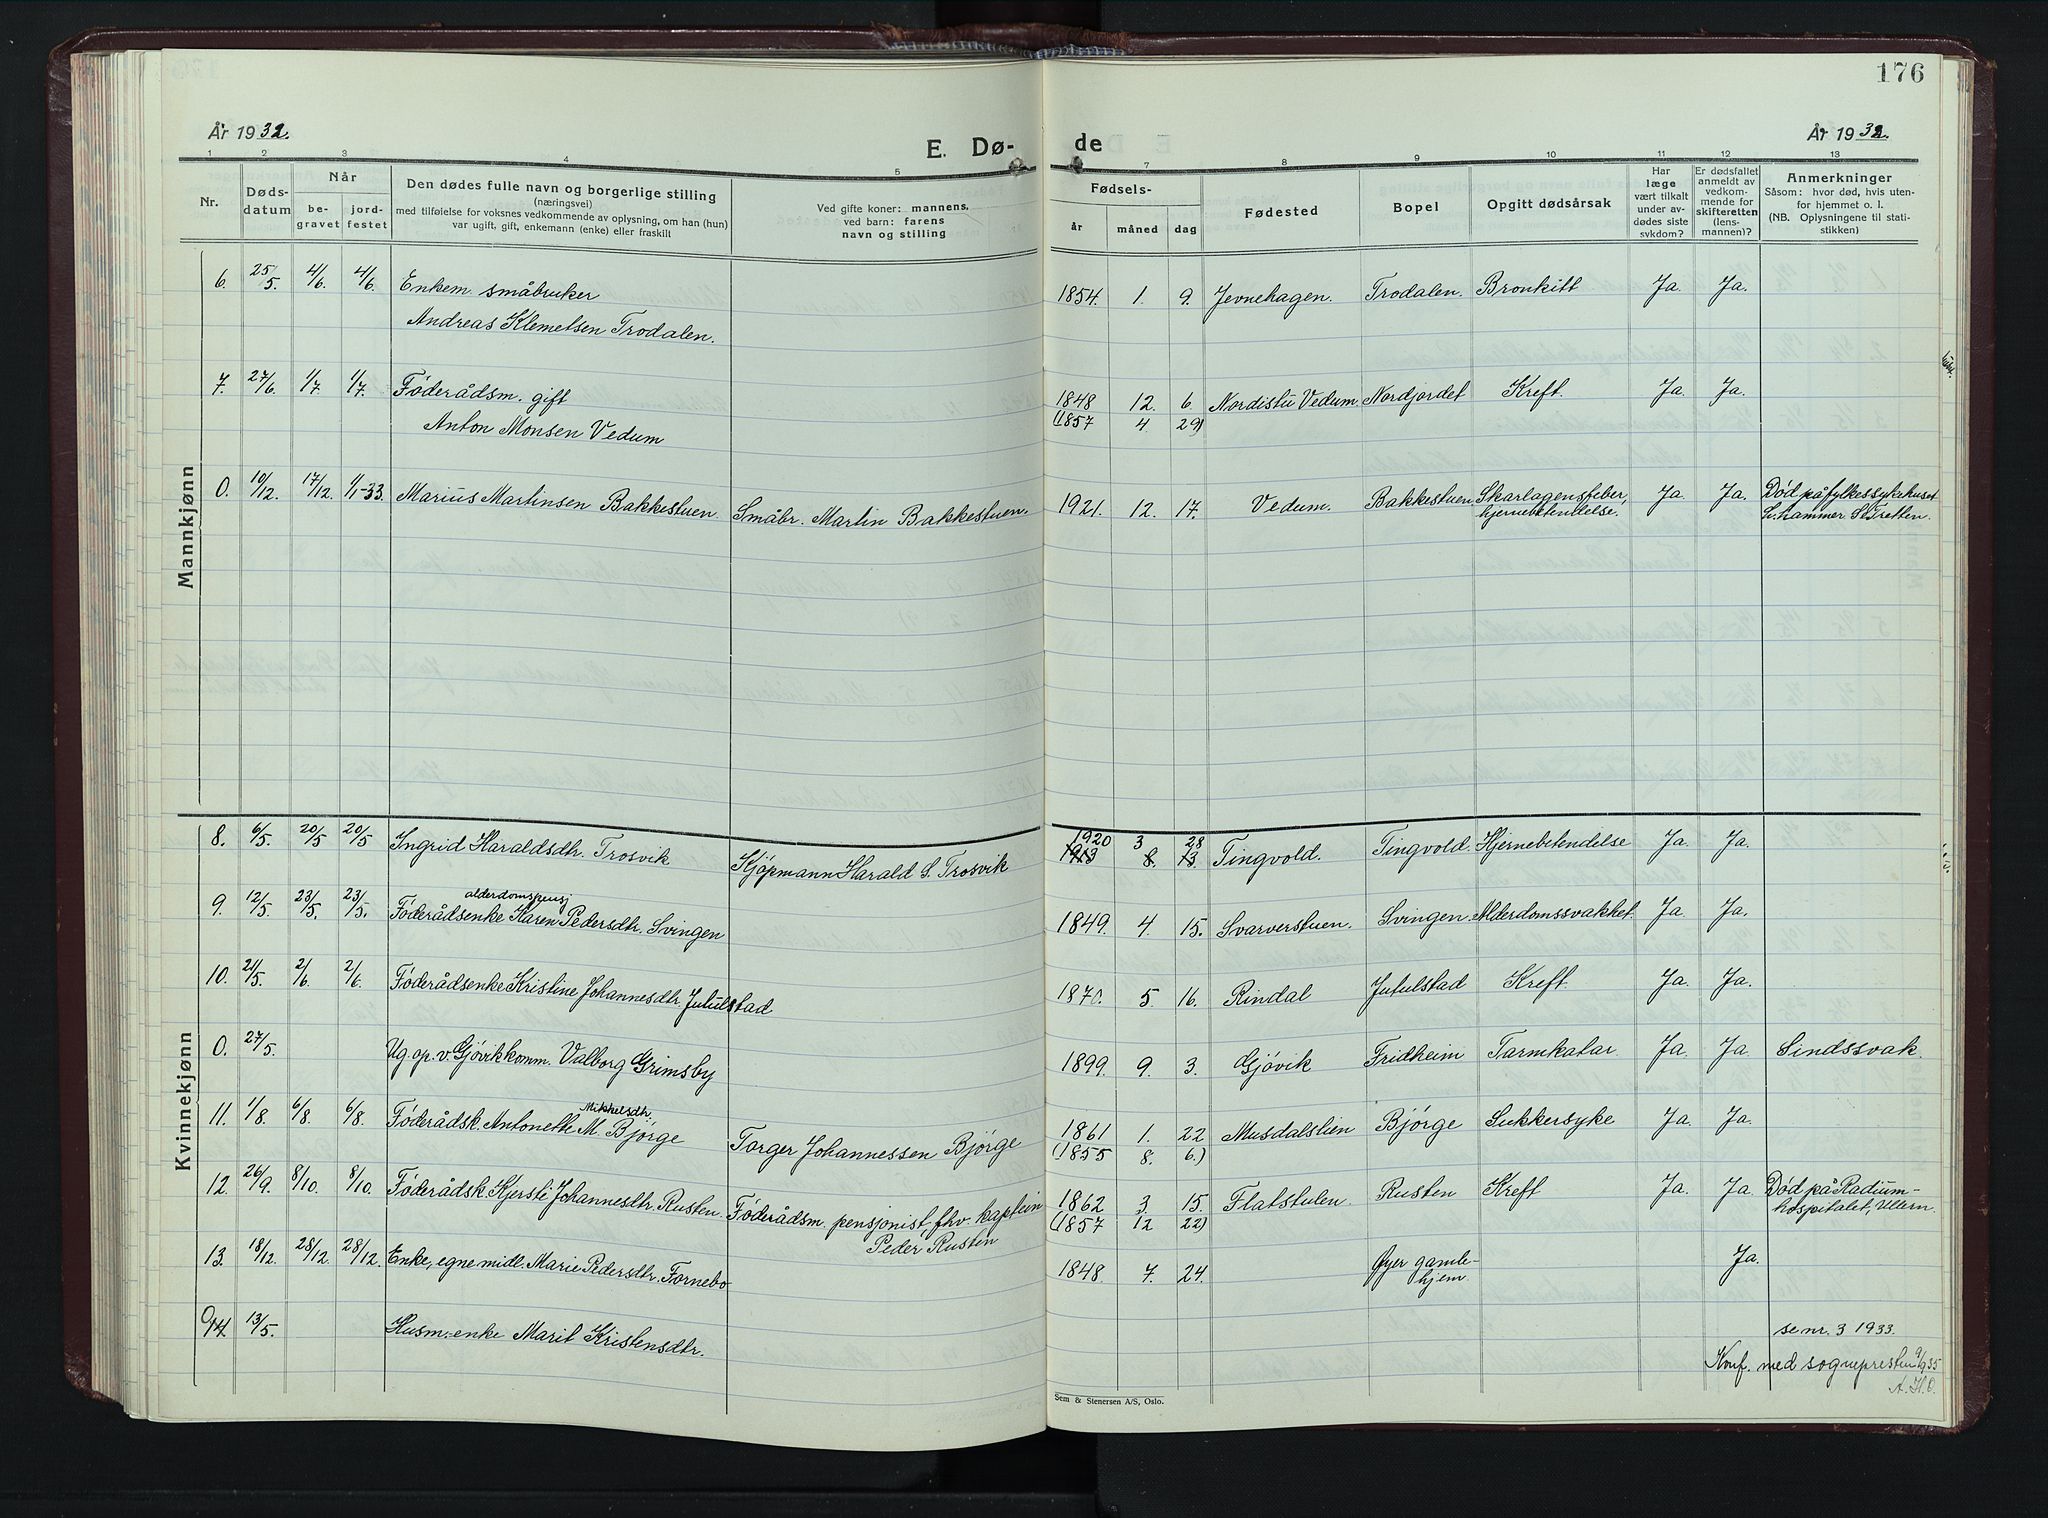 176
År 1932.
E. Døde
År 1932.
1 2 3 4 5 7 8 9 10 11 12 13
Nr.
Døds-datum
Når
be-gravet
jord-festet
Den dødes fulle navn og borgerlige stilling
(næringsvei)
med tilføielse for voksnes vedkommende av oplysning, om han (hun)
var ugift, gift, enkemann (enke) eller fraskilt
Ved gifte koner: mannens,
ved barn: farens
navn og stilling
Fødsels-
år måned dag
Fødested
Bopel
Opgitt dødsårsak
Har læge vært tilkalt under av-dødes siste sykdom?
Er dødsfallet anmeldt av vedkom-mende for skifteretten (lens-mannen)?
Anmerkninger
Såsom: hvor død, hvis uten-
for hjemmet o. l.
(NB. Oplysningene til stati-
stikken)
Mannkjønn
6. 25/5. 4/6. 4/6. Enkem. småbruker 1854. 1. 9. Jevnehagen. Trodalen. Bronkitt Ja. Ja.
Andreas Klemetsen Trodalen.
7. 27/6. 1/7. 1/7. Föderådsm. gift 1848 12. 6. Nordistu Vedum Nordjordet Kreft. Ja. Ja.
Anton Monsen Vedum (1857 4. 29)
0. 10/12. 17/12. 1/1-33. Marius Martinsen Bakkestuen Småbr. Martin Bakkestuen. 1921. 12. 17. Vedum. Bakkestuen Skarlagensfeber, Ja. Ja. Död på fylkessykehuset
hjernebetendelse. L.hammer St. Tretten.
Kvinnekjønn
8. 6/5. 20/5 20/5 Ingrid Haraldsdtr. Trosvik Kjöpmann Harald S. Trosvik 1920 3 28
1913 8. 13 Tingvold. Tingvold. Hjernebetendelse Ja. Ja.
alderdomspensj
9. 12/5. 23/5. 23/5. Föderådsenke Karen Pedersdtr. Svingen 1849. 4. 15. Svarverstuen. Svingen. Alderdomssvakhet. Ja. Ja.
10. 21/5. 2/6. 2/6. Föderådsenke Kristine Johannesdtr. Jutulstad 1870. 5. 16. Rindal Jutulstad Kreft. Ja. Ja.
0. 27/5. Ug. op. v. Gjövik komm. Valborg Grimsby 1899. 9. 3. Gjövik Fridheim Tarmkatar. Ja. Ja. Sindssvak.
Mikkelsdtr.
11. 1/8. 6/8. 6/8. Föderådsk. Antonette M. Björge Torger Johannessen Björge 1861 1. 22 Musdalslien Björge Sukkersyke Ja. Ja.
(1855 8. 6.)
12. 26/9. 8/10. 8/10. Föderådsk. Kjersti Johannesdtr. Rusten. Föderådsm. pensjonist, fhv. kaptein 1862 3. 15. Flatstulen. Rusten Kreft Ja. Ja. Död på Radium-
Peder Rusten (1857 12 22) hospitalet, Ullern.
13. 18/12. 28/12. 28/12. Enke, egne midl. Marie Pedersdtr. Fornebo 1848. 7. 24. Øyer gamle- Ja.
hjem.
14. 13/5. Husm.enke Marit Kristensdtr. se nr. 3 1933.
Konf. med sognepresten 9/9 35
A. H. O.
Sem & Stenersen A/S, Oslo.